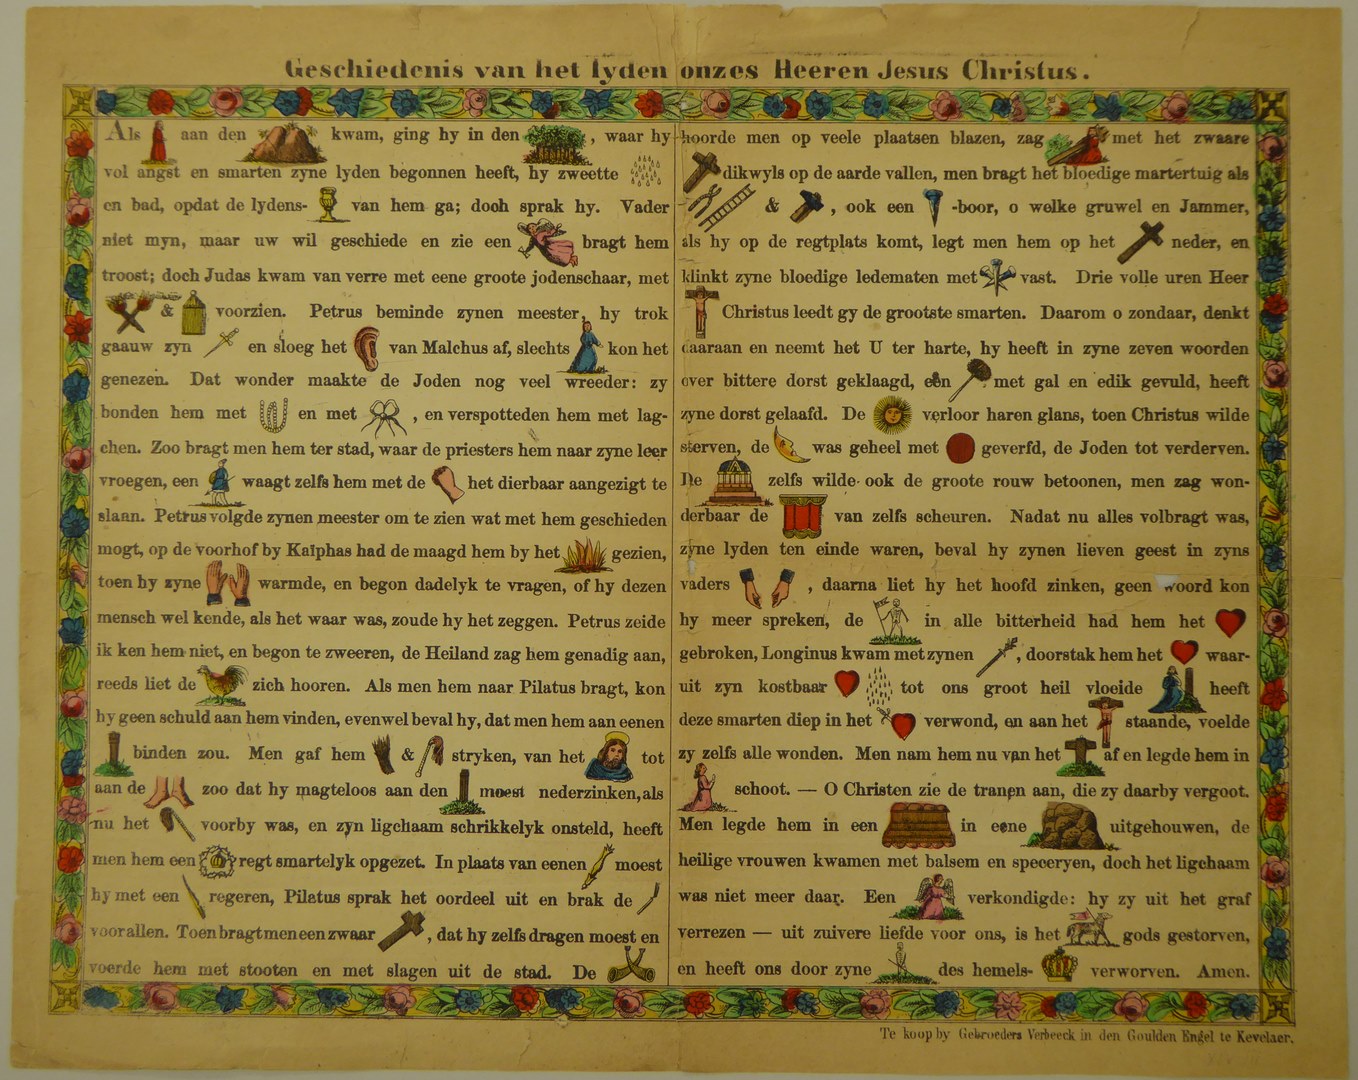 Geschiedenis van het lyden onzes Heeren Jesus Christus.
Als aan den kwam, ging hy in den , waar hy
vol angst en smarten zyne lyden begonnen heeft, hy zweette
en bad, opdat de lydens- van hem ga; doch sprak hy. Vader
niet myn, maar uw wil geschiede en zie een bragt hem
troost; doch Judas kwam van verre met eene groote jodenschaar, met
& voorzien. Petrus beminde zynen meester, hy trok
gaauw zyn en sloeg het van Malchus af, slechts kon het
genezen. Dat wonder maakte de Joden nog veel wreeder: zy
bonden hem met en met , en verspotteden hem met lag-
chen. Zoo bragt men hem ter stad, waar de priesters hem naar zyne leer
vroegen, een waagt zelfs hem met de het dierbaar aangezigt te
slaan. Petrus volgde zynen meester om te zien wat met hem geschieden
mogt, op de voorhof by Kaïphas had de maagd hem by het gezien,
toen hy zyne warmde, en begon dadelyk te vragen, of hy dezen
mensch wel kende, als het waar was, zoude hy het zeggen. Petrus zeide
ik ken hem niet, en begon te zweeren, de Heiland zag hem genadig aan,
reeds liet de zich hooren. Als men hem naar Pilatus bragt, kon
hy geen schuld aan hem vinden, evenwel beval hy, dat men hem aan eenen
binden zou. Men gaf hem & stryken, van het tot
aan de zoo dat hy magteloos aan den moest nederzinken, als
nu het voorby was, en zyn ligchaam schrikkelyk onsteld, heeft
men hem een regt smartelyk opgezet. In plaats van eenen moest
hy met een regeren, Pilatus sprak het oordeel uit en brak de
voor allen. Toen bragt men een zwaar , dat hy zelfs dragen moest en
voerde hem met stooten en met slagen uit de stad. De
hoorde men op veele plaatsen blazen, zag met het zwaare
dikwyls op de aarde vallen, men bragt het bloedige martertuig als
& , ook een -boor, o welke gruwel en Jammer,
als hy op de regtplats komt, legt men hem op het neder, en
klinkt zyne bloedige ledematen met vast. Drie volle uren Heer
Christus leedt gy de grootste smarten. Daarom o zondaar, denkt
daaraan en neemt het U ter harte, hy heeft in zyne zeven woorden
over bittere dorst geklaagd, een met gal en edik gevuld, heeft
zyne dorst gelaafd. De verloor haren glans, toen Christus wilde
sterven, de was geheel met geverfd, de Joden tot verderven.
De zelfs wilde ook de groote rouw betoonen, men zag won-
derbaar de van zelfs scheuren. Nadat nu alles volbragt was,
zyne lyden ten einde waren, beval hy zynen lieven geest in zyns
vaders , daarna liet hy het hoofd zinken, geen woord kon
hy meer spreken, de in alle bitterheid had hem het
gebroken, Longinus kwam met zynen , doorstak hem het waar-
uit zyn kostbaar tot ons groot heil vloeide heeft
deze smarten diep in het verwond, en aan het staande, voelde
zy zelfs alle wonden. Men nam hem nu van het af en legde hem in
schoot. — O Christen zie de tranen aan, die zy daarby vergoot.
Men legde hem in een in eene uitgehouwen, de
heilige vrouwen kwamen met balsem en speceryen, doch het ligchaam
was niet meer daar. Een verkondigde: hy zy uit het graf
verrezen — uit zuivere liefde voor ons, is het gods gestorven,
en heeft ons door zyne des hemels- verworven. Amen.
Te koop by Gebroeders Verbeeck in den Goulden Engel te Kevelaer.